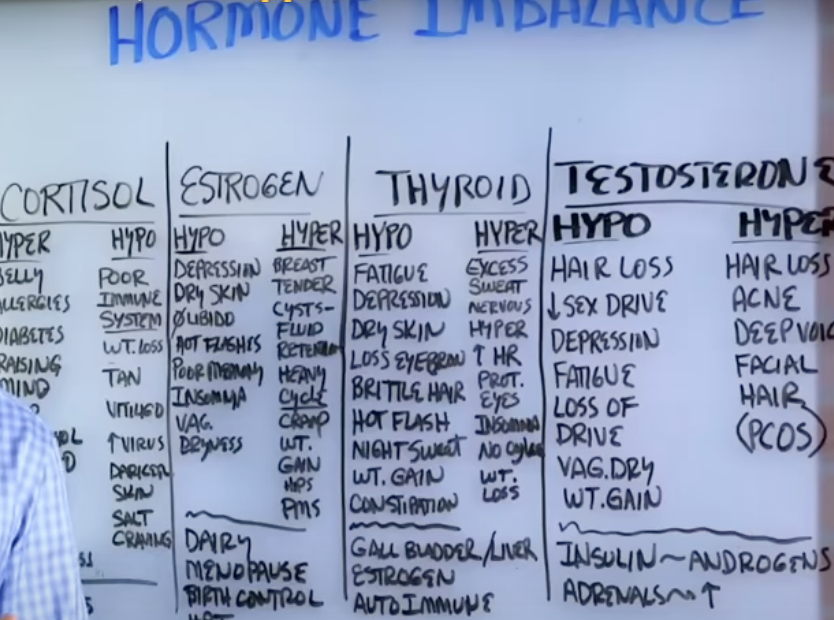 HORMONE IMBALANCE
CORTISOL
HYPER
BELLY
ALLERGIES
DIABETES
RAISING
MIND
HYPO
POOR
IMMUNE
SYSTEM
WT. LOSS
TAN
VITILIGO
↑VIRUS
DARKEN
SKIN
SALT
CRAVING
ESTROGEN
HYPO
DEPRESSION
DRY SKIN
ØLIBIDO
HOT FLASHES
POOR MEMORY
INSOMNIA
VAG.
DRYNESS
HYPER
BREAST
TENDER
CYSTS-
FLUID
RETENTION
HEAVY
CYCLE
CRAMP
WT.
GAIN
HIPS
PMS
DAIRY
MENOPAUSE
BIRTH CONTROL
THYROID
HYPO
FATIGUE
DEPRESSION
DRY SKIN
LOSS EYEBROW
BRITTLE HAIR
HOT FLASH
NIGHT SWEAT
WT. GAIN
CONSTIPATION
HYPER
EXCESS
SWEAT
NERVOUS
HYPER
↑ HR
PROT.
EYES
INSOMNIA
NO Cycle
WT.
LOSS
GALL BLADDER/LIVER
ESTROGEN
AUTOIMMUNE
TESTOSTERONE
HYPO
HAIR LOSS
↓SEX DRIVE
DEPRESSION
FATIGUE
LOSS OF
DRIVE
VAG. DRY
WT. GAIN
HYPER
HAIR LOSS
ACNE
DEEP VOIC
FACIAL
HAIR
(PCOS)
INSULIN~ANDROGENS
ADRENALS~↑